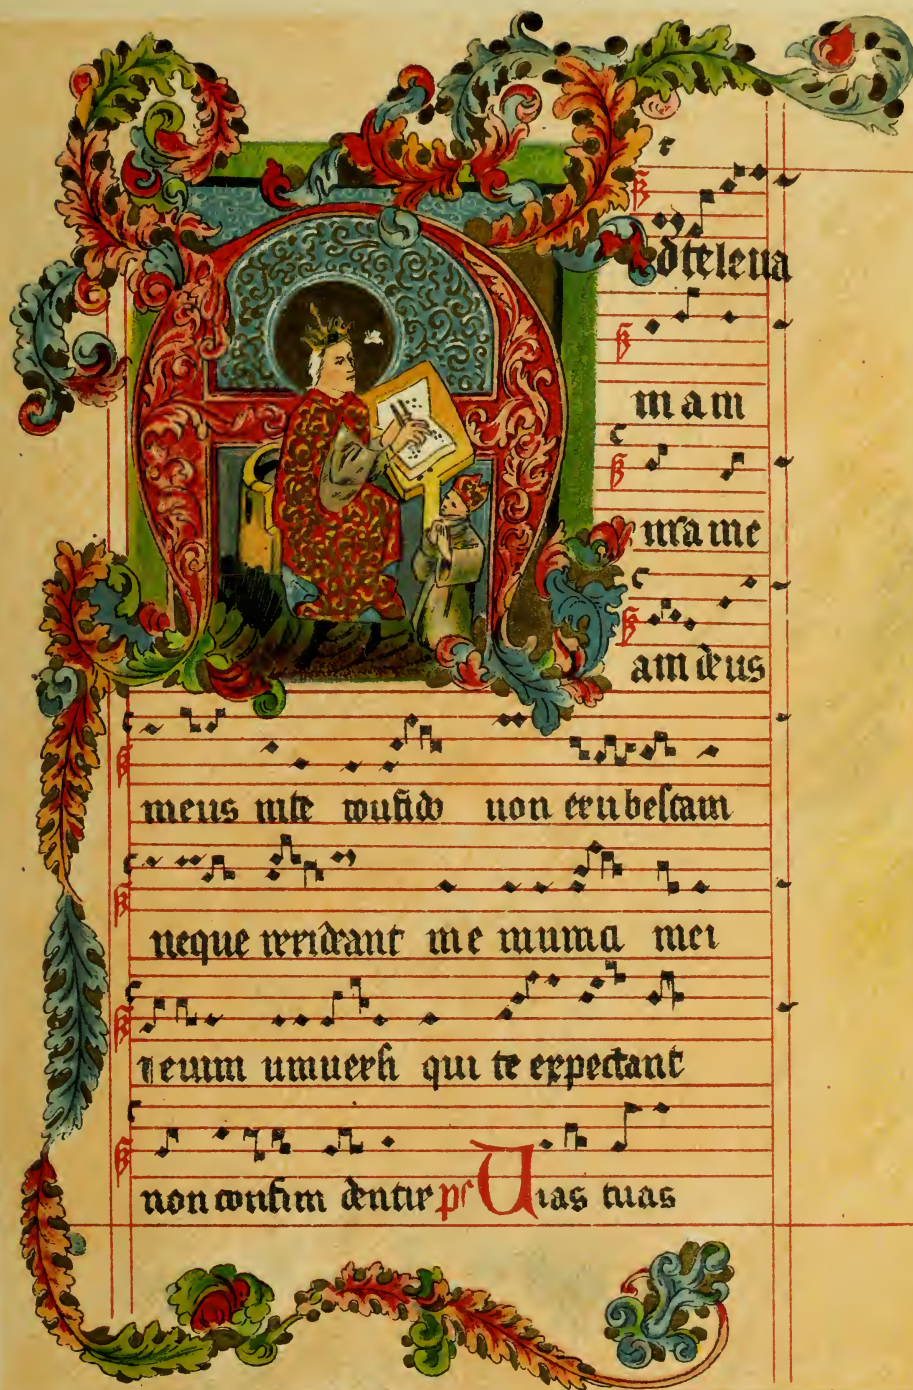 Ad te leua
mam
nram me
am deus
meus in te confido non erubescam
neque irrideant me inimici mei
etenim uniuersi qui te expectant
non confundentur ps Uias tuas